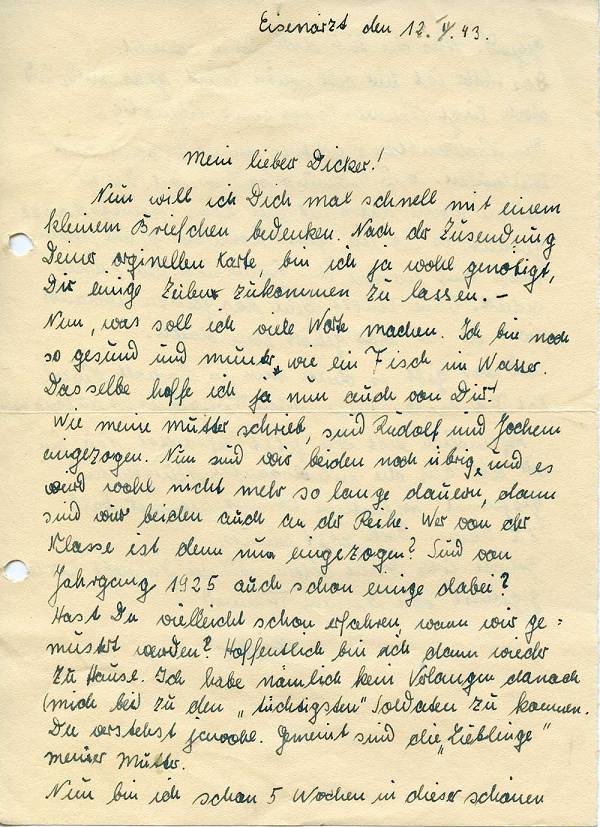 Eisenärzt den 12. V. 43.
Mein lieber Dicker!
Nun will ich Dich mal schnell mit einem
kleinem Briefchen bedenken. Nach der Zusendung
Deiner orginellen Karte, bin ich ja wohl genötigt,
Dir einige Zeilen zukommen zu lassen. –
Nun, was soll ich viele Worte machen. Ich bin noch
so gesund und munter, wie ein Fisch im Wasser.
Dasselbe hoffe ich ja nun auch von Dir!
Wie meine Mutter schrieb, sind Rudolf und Jochem
eingezogen. Nun sind wir beiden noch übrig, und es
wird wohl nicht mehr so lange dauern, dann
sind wir beiden auch an der Reihe. Wer von der
Klasse ist denn nun eingezogen? Sind vom
Jahrgang 1925 auch schon einige dabei?
Hast Du vielleicht schon erfahren, wann wir ge=
mustert werden? Hoffentlich bin ich dann wieder
zu Hause. Ich habe nämlich kein Verlangen danach
(mich bei) zu den „tüchtigsten" Soldaten zu kommen.
Du verstehst jawohl. Gemeint sind die „Lieblinge"
meiner Mutter.
Nun bin ich schon 5 Wochen in dieser schönen